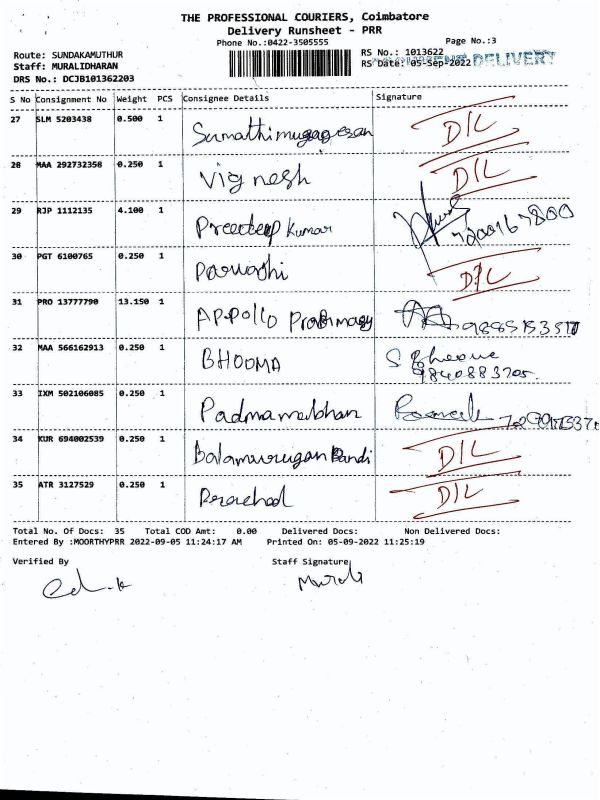 THE PROFESSIONAL COURIERS, Coimbatore
Delivery Runsheet - PRR
Phone No.:0422-3505555
Page No.:3
Route: SUNDAKAMUTHUR
RS No.: 1013622
Staff: MURALIDHARAN
RS Date: 05-Sep-2022 DELIVERY
DRS No.: DCJB101362203
S No Consignment No Weight PCS Consignee Details Signature
27 SLM 5203438 0.500 1 Sumathimugagesan D/L
28 MAA 292732358 0.250 1 Vignesh D/L
29 RJP 1112135 4.100 1 Preedeep Kumar 7200167800
30 PGT 6100765 0.250 1 D/L
31 PRO 13777790 13.150 1 APPOLLO
32 MAA 566162913 0.250 1 BHOOMA S
9840883705.
33 IXM 502106085 0.250 1
34 KUR 694002539 0.250 1 Balamurugan Pandi D/L
35 ATR 3127529 0.250 1 D/L
Total No. Of Docs: 35 Total COD Amt: 0.00 Delivered Docs: Non Delivered Docs:
Entered By :MOORTHYPRR 2022-09-05 11:24:17 AM Printed On: 05-09-2022 11:25:19
Verified By Staff Signature
Murali